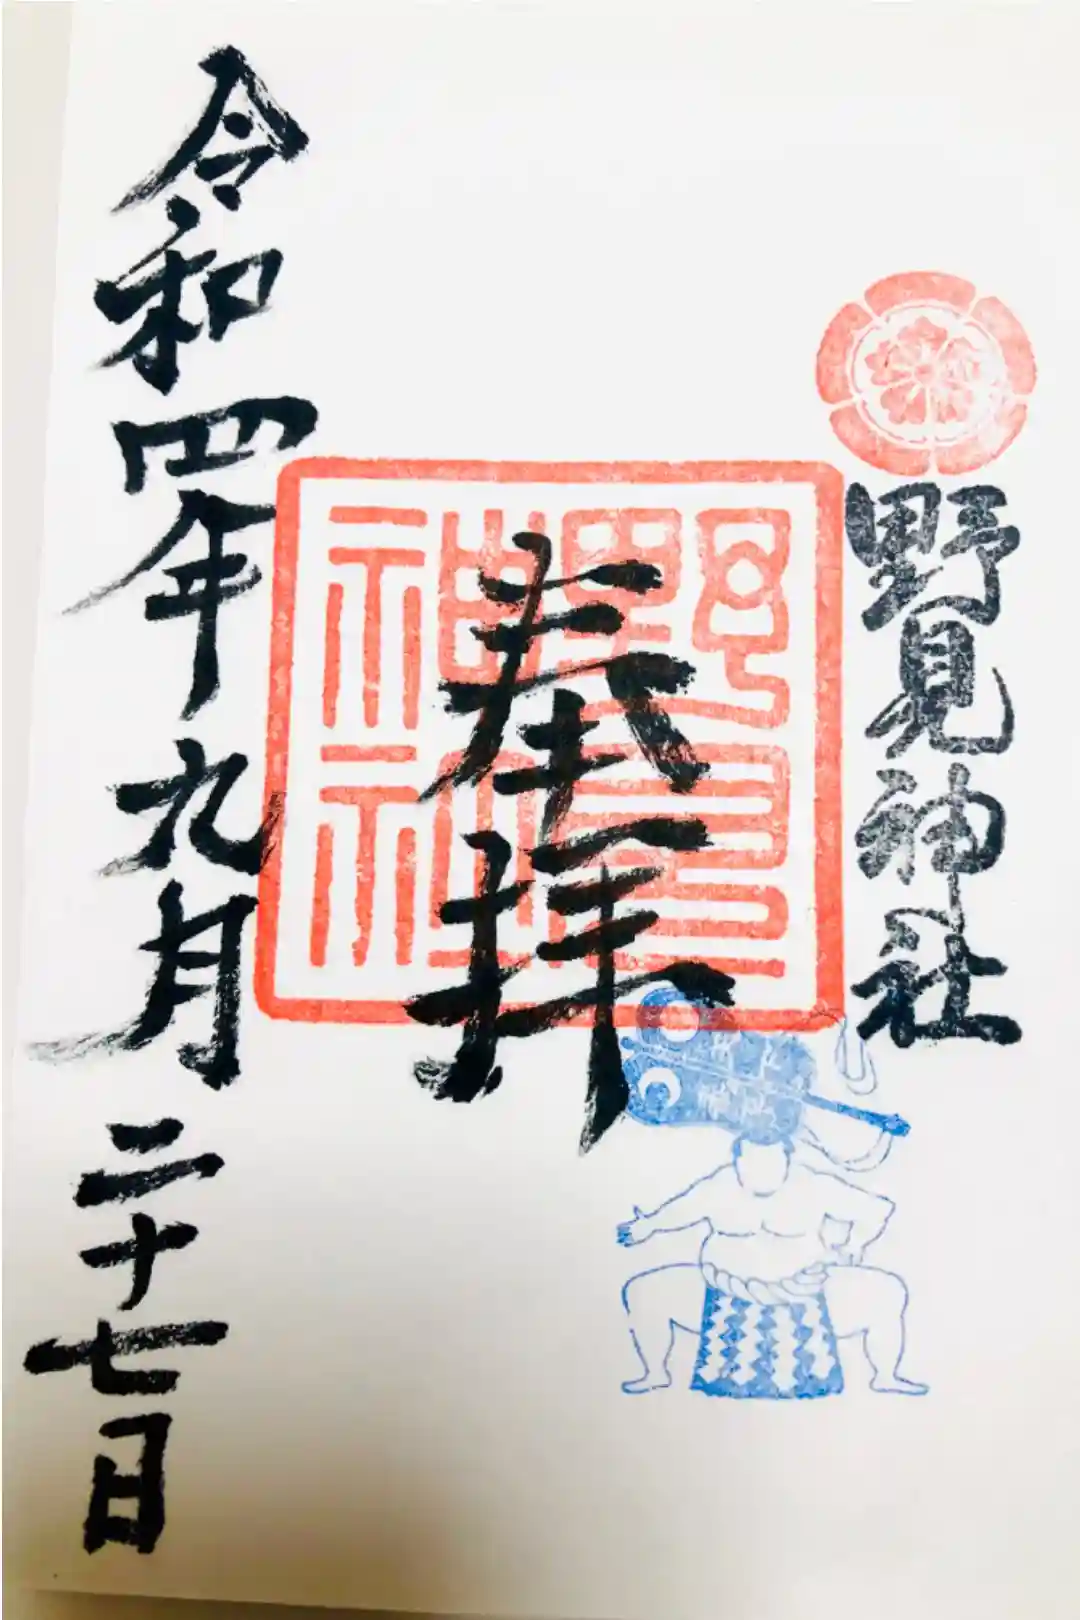 野見神社
奉拝
野見神社
令和四年九月二十七日